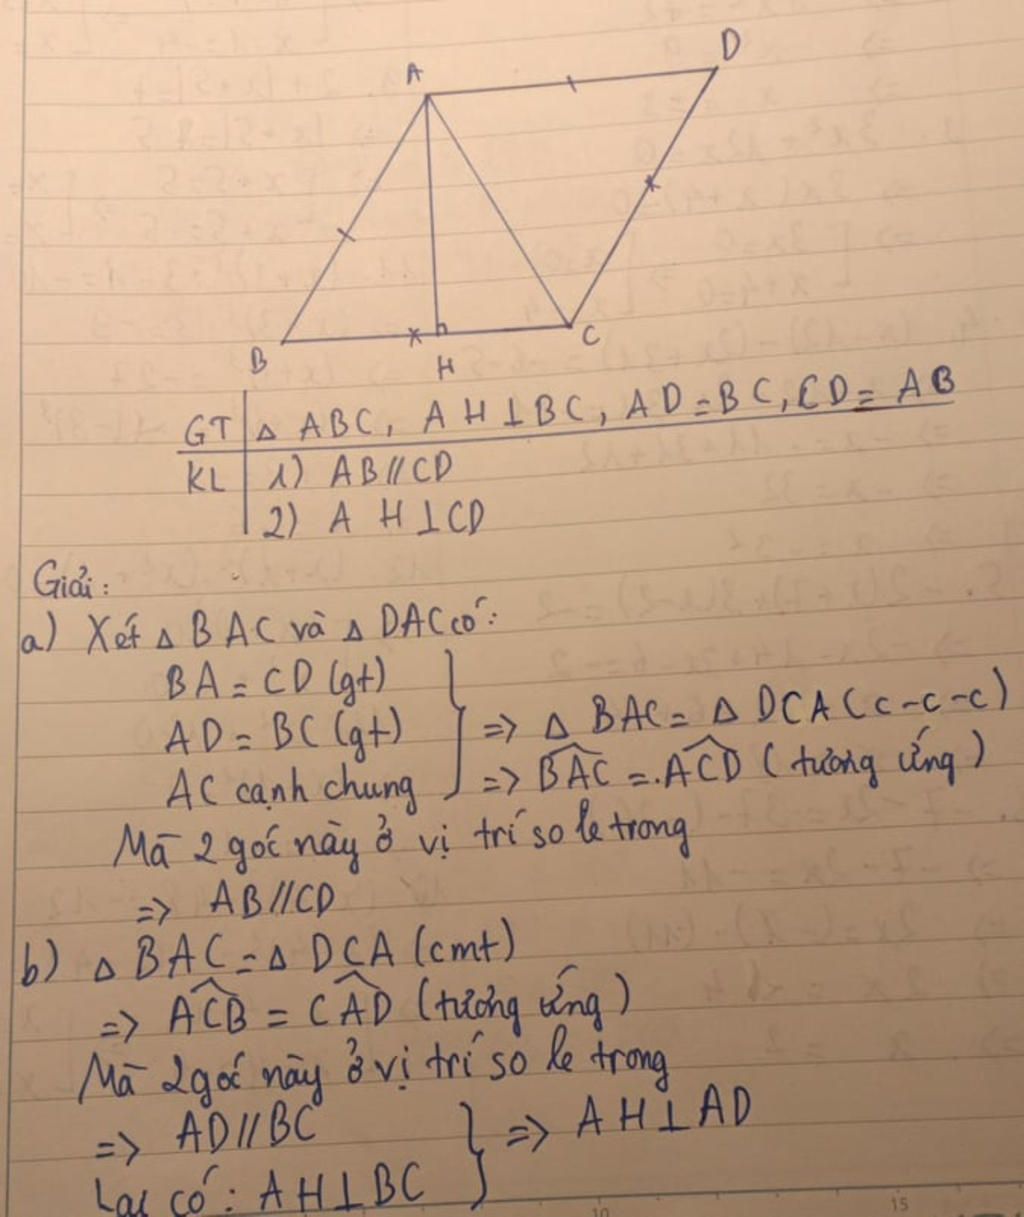 A
D
B
H
C
GT △ ABC, AH⊥BC, AD=BC, CD=AB
KL 1) AB//CD
2) AH⊥CD
Giải:
a) Xét △ BAC và △ DAC có:
BA = CD (gt)
AD = BC (gt)
=> △ BAC = △ DCA (c-c-c)
AC cạnh chung
=> BAC = ACD (tương ứng)
Mà 2 góc này ở vị trí so le trong
=> AB//CD
b) △ BAC = △ DCA (cmt)
=> ACB = CAD (tương ứng)
Mà 2 góc này ở vị trí so le trong
=> AD//BC
=> AH⊥AD
Lại có: AH⊥BC
10
15